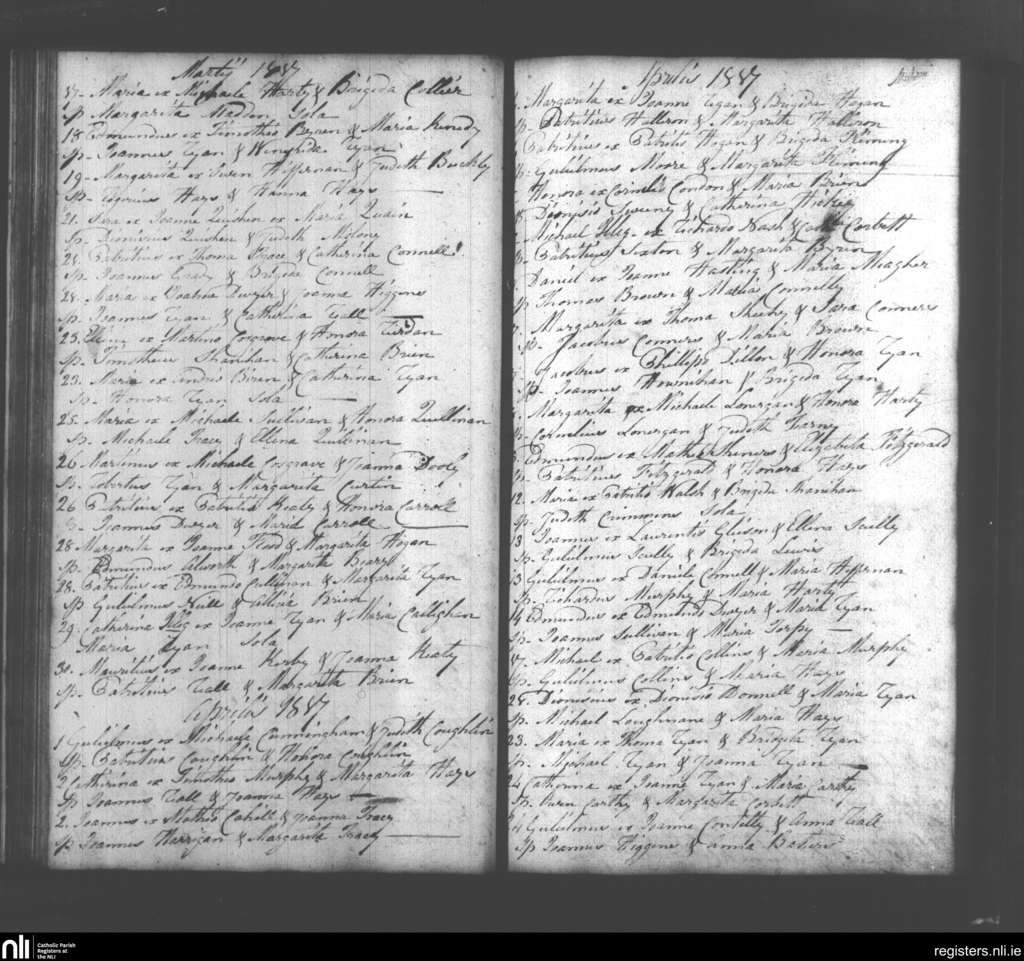 Martij 1837
17. Maria ex Michaele Harty & Brigida Collier
Sp Margarita Madden Sola
18 Edmundus ex Timotheo Byren & Maria Kenedy
Sp. Joannes Ryan & Winefrida Ryan
19. Margarita ex Heffernan & Judith Buckley
Sp. Hays & Hanna Hays
21. Sara ex Joanne ex Maria Quain
Sp. Dionisius & Judith Molony
21. Patritius ex Thoma & Catharina Connell
Sp Joannes Grady & Brigida Connell
22. Maria ex Dwyer & Joanna Higgins
Sp. Joannes Ryan & Catherina Wall
23. ex Martino Cosgrave & Honora
Sp. Timotheus Shanahan & Catherina Brien
23. Maria ex Andrea Biren & Catharina Ryan
Sp. Honora Ryan Sola
25. Maria ex Michaele Sullivan & Honora Quillinan
Sp. Michaele Tracy & Ellena Quillinan
26 Martinus ex Michaele Cosgrave & Joanna Dooly
Sp. Robertus Ryan & Margarita Curtin
26 Patritius ex Patritio Healy & Honora Carroll
Sp. Joannes Dwyer & Maria Carroll
28 Margarita ex Joanne Flood & Margarita Hogan
Sp. Edmundus & Margarita
28. Patritius ex Edmundo Sullivan & Margarita Ryan
Sp Gulielmus & Allicia Brien
29. Catherina Illeg ex Joanne Ryan & Maria Callighan
Maria Ryan Sola
30. Mauritius ex Joanne Kirby & Joanna Keaty
Sp. Patritius Wall & Margarita Brien
Aprilis 1837
1 Gulielmus ex Michaele Cunningham & Judith Coughlin
Sp. Patritius Coughlin & Honora Coughlin
2 Catherina ex Timotheo Murphy & Margarita Hays
Sp Joannes Wall & Joanna Hays
2. Joannes ex Matheo Cahill & Joanna Tracy
Sp Joannes Harrigan & Margarita Tracy
Aprilis 1837
Margarita ex Joanne Egan & Brigida Hogan
Sp. Patritius Halloron & Margarita Halloron
Patritius ex Patritio Hogan & Brigida Fleming
Sp. Gulielmus Moore & Margarita Fleming
Honora ex Cornelio Condon & Maria Brien
Sp. Dionisio Sweeny & Catherina Hickey
Michael Illeg. ex Richardo Nash & Corbett
Sp. Patritius Sexton & Margarita Byrin
Daniel ex Joanne Hasting & Maria Meagher
Sp Thomas Brown & Connelly
Margarita ex Thoma Sheehy & Sara Conners
Sp. Jacobus Conners & Maria Browne
Jacobus ex Phillippo Dillon & Honora Ryan
Sp. Joannes Hounihan & Brigida Ryan
Margarita ex Michaele Lonergan & Honora Harty
Sp. Cornelius Lonergan & Judith Kearny
Edmundus ex & Elizabeth Fitzgerald
Sp. Patritius Fitzgerald & Honora Hays
12. Maria ex Patritio Walsh & Brigida Shanihan
Sp. Judith Crimmins Sola
13 Joannes ex Laurentio Gleeson & Ellena Scully
Sp. Gulielmus Scully & Brigida Lewis
13 Gulielmus ex Daniele Connell & Maria Heffernan
Sp. Richardus Murphy & Maria Harty
14 Edmundus ex Edmundo Dwyer & Maria Ryan
Sp. Joannes Sullivan & Maria Torpy
17. Michael ex Patritio Collins & Maria Murphy
Sp. Gulielmus Collins & Maria Hays
22. Dionisius ex Dionisio Donnell & Maria Ryan
Sp. Michael Loughnane & Maria Hays
23. Maria ex Thoma Ryan & Brigida Ryan
Sp. Michael Ryan & Joanna Ryan
24 Catherina ex Joanne Ryan & Maria Carthy
Sp. Owen Carthy & Margarita Corbett
24 Gulielmus ex Joanne Connelly & Anna Wall
Sp Joannes Higgins & Anna
nli Catholic Parish
Registers at
the NLI
registers.nli.ie